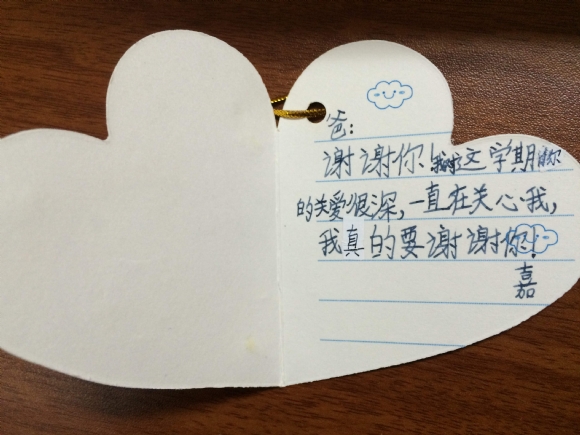 爸:
谢谢你!这学期你
的关爱很深,一直在关心我,
我真的要谢谢你!
嘉